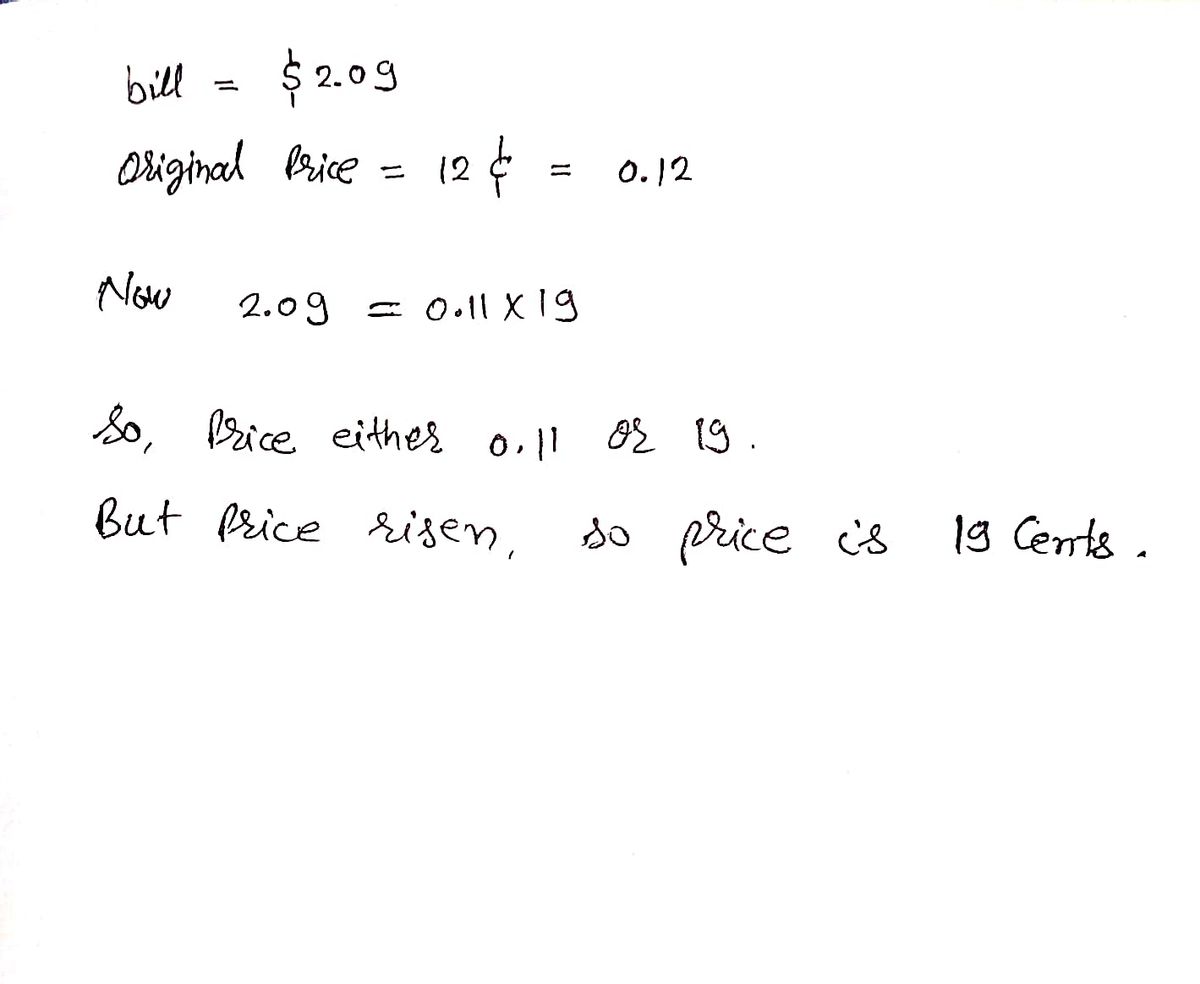 bill = $2.09
Original Price = 12 ¢ = 0.12
Now 2.09 = 0.11 X 19
So, Price either 0.11 or 19.
But Price risen, so price is 19 Cents.